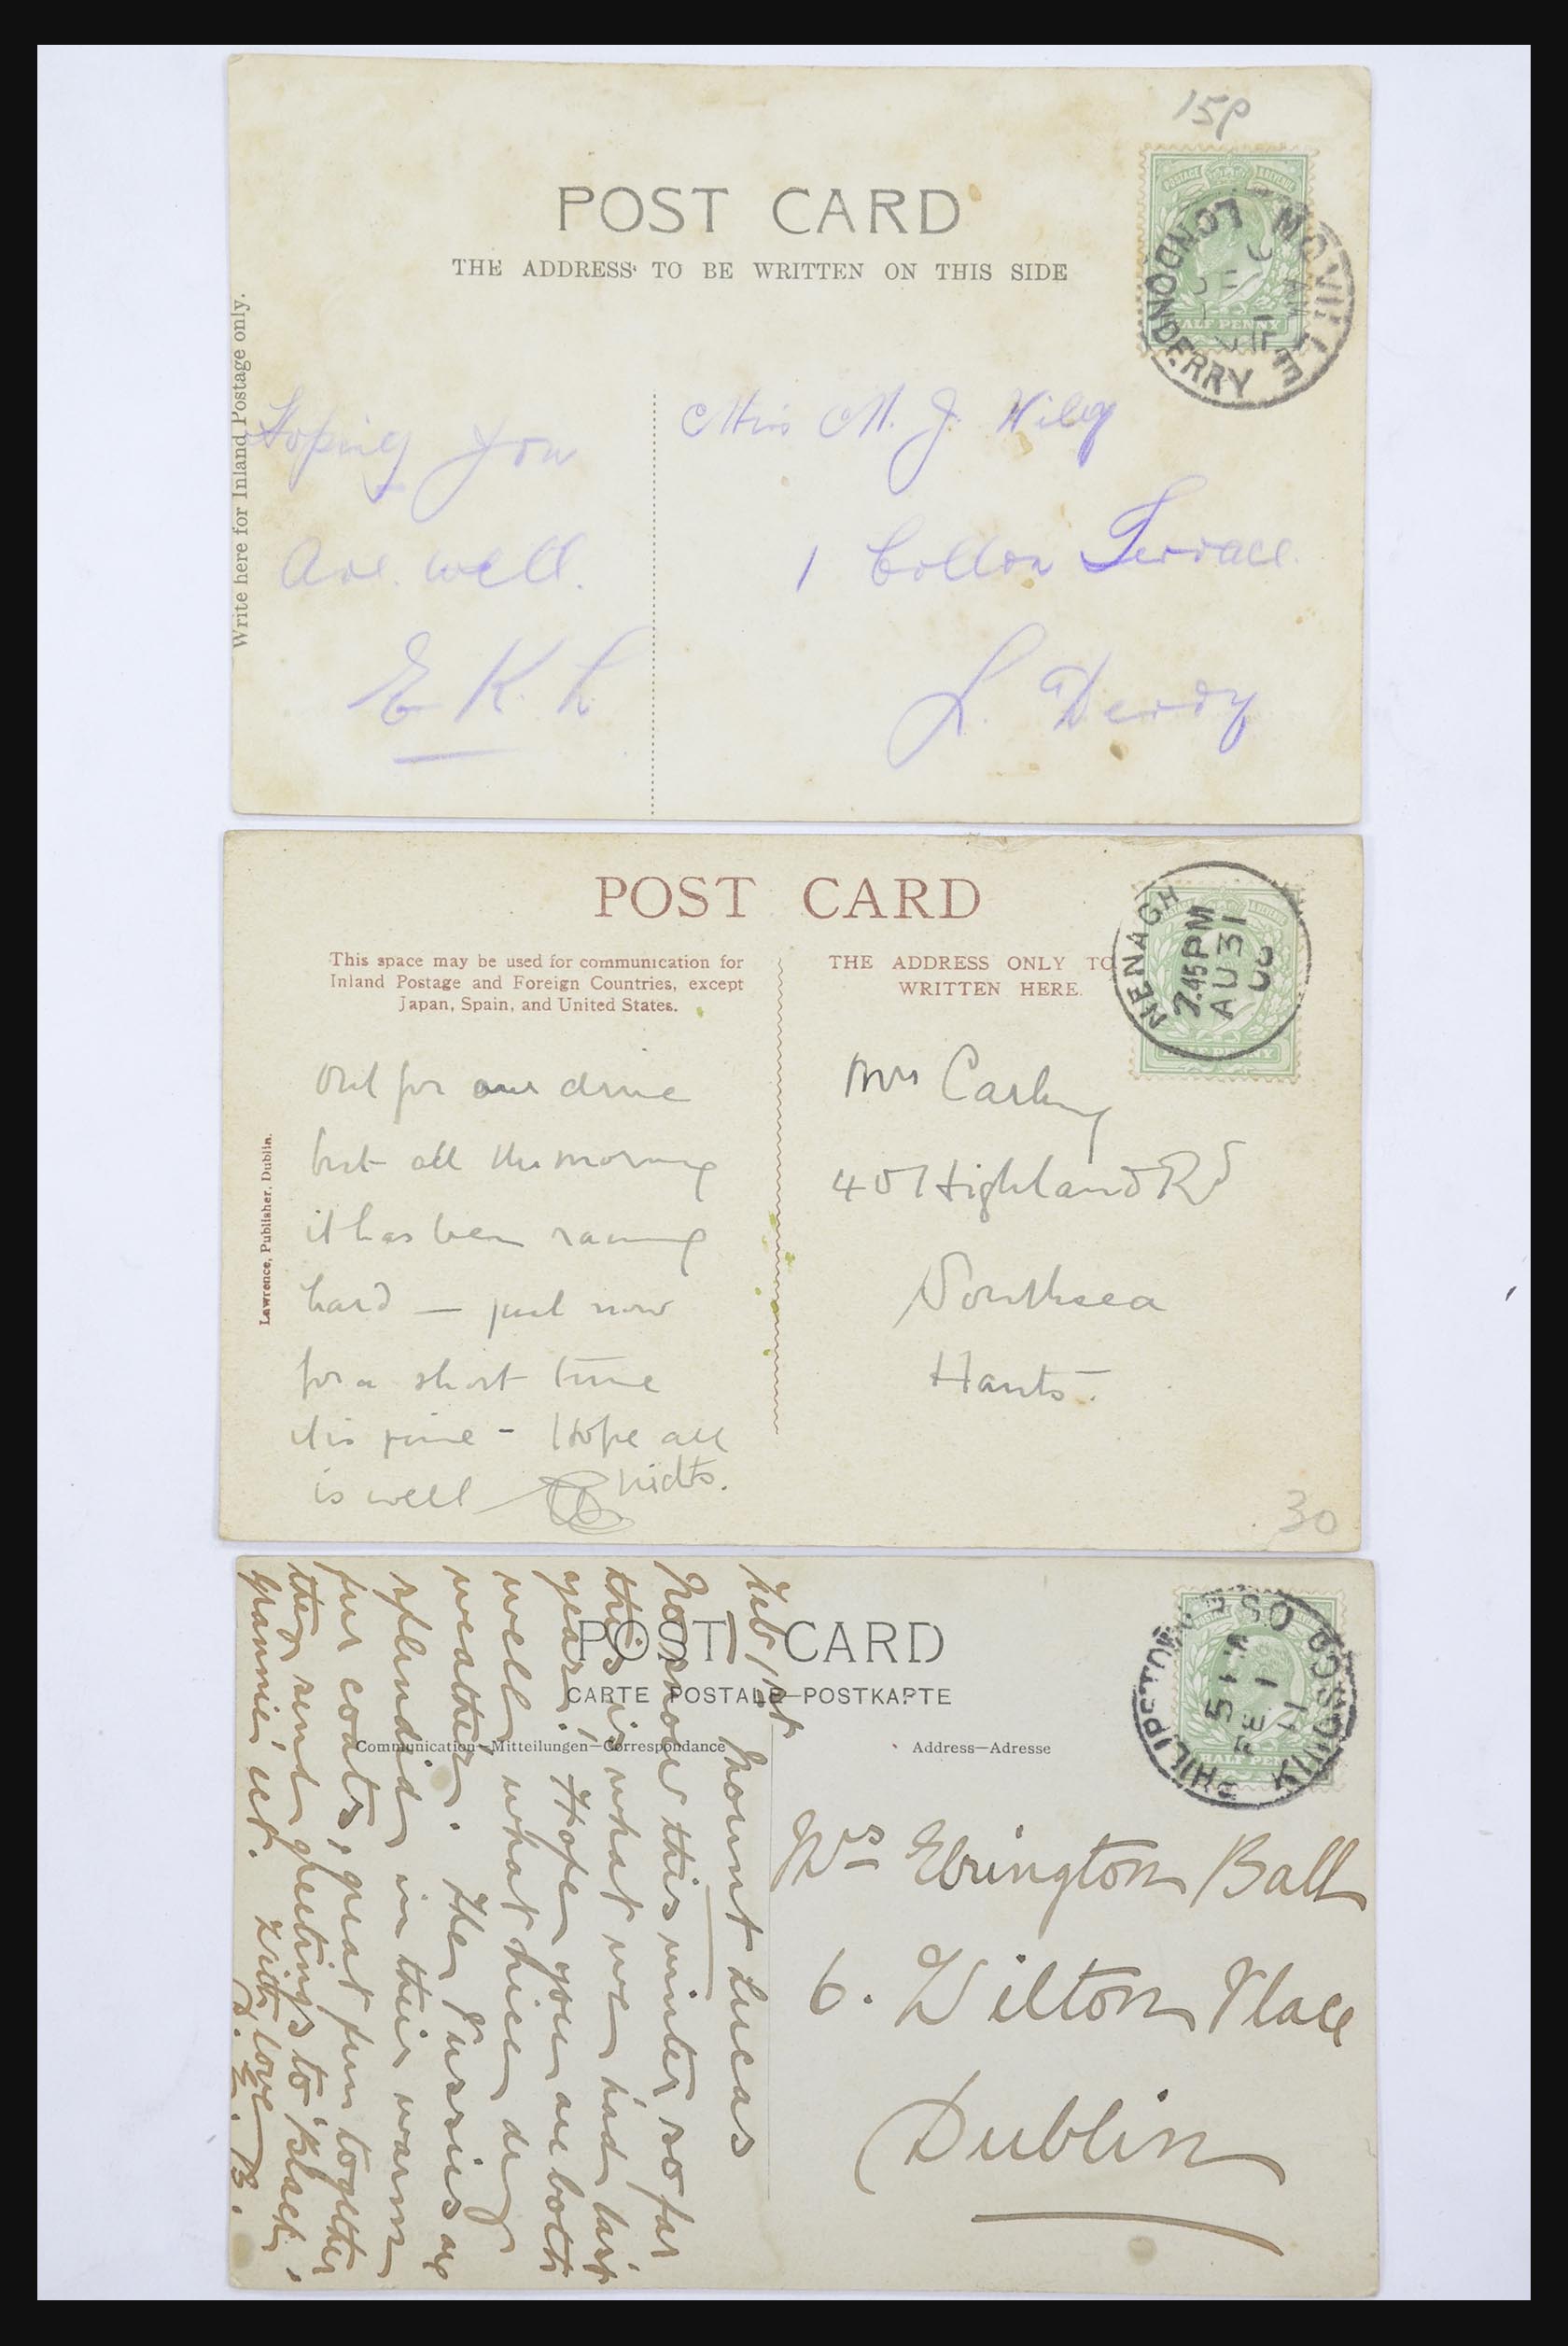 15p
POST CARD
THE ADDRESS TO BE WRITTEN ON THIS SIDE
POSTAGE REVENUE
HALF PENNY
MOVILLE
LONDONDERRY
Write here for Inland Postage only.
Hoping you
are. well.
E K. L
Miss M. J.
1 Collon Terrace.
L. Derry
POST CARD
This space may be used for communication for
Inland Postage and Foreign Countries, except
Japan, Spain, and United States.
THE ADDRESS ONLY TO
WRITTEN HERE.
NENAGH
7.45 PM
AU 31
HALF PENNY
Lawrence, Publisher, Dublin.
Out for our drive
but all the morning
it has been raining
hard — just now
for a short time
it is fine - Hope all
is well
Mrs
Highland Rd
Southsea
Hants.
30
POST CARD
CARTE POSTALE—POSTKARTE
Communication—Mitteilungen—Correspondance
Address—Adresse
HALF PENNY
PHILIPSTOWN
KINGS CO
FE 1
11
Feb 1st
Mount Lucas
No snow this winter so far
this is what we had last
year! Hope you are both
well, what nice dry
weather. The Pussies are
splendid in their warm
fur coats, great fun together
they send greetings to 'Black',
grannie's cat. With love
B.
Mrs Ebrington Ball
6. Wilton Place
Dublin